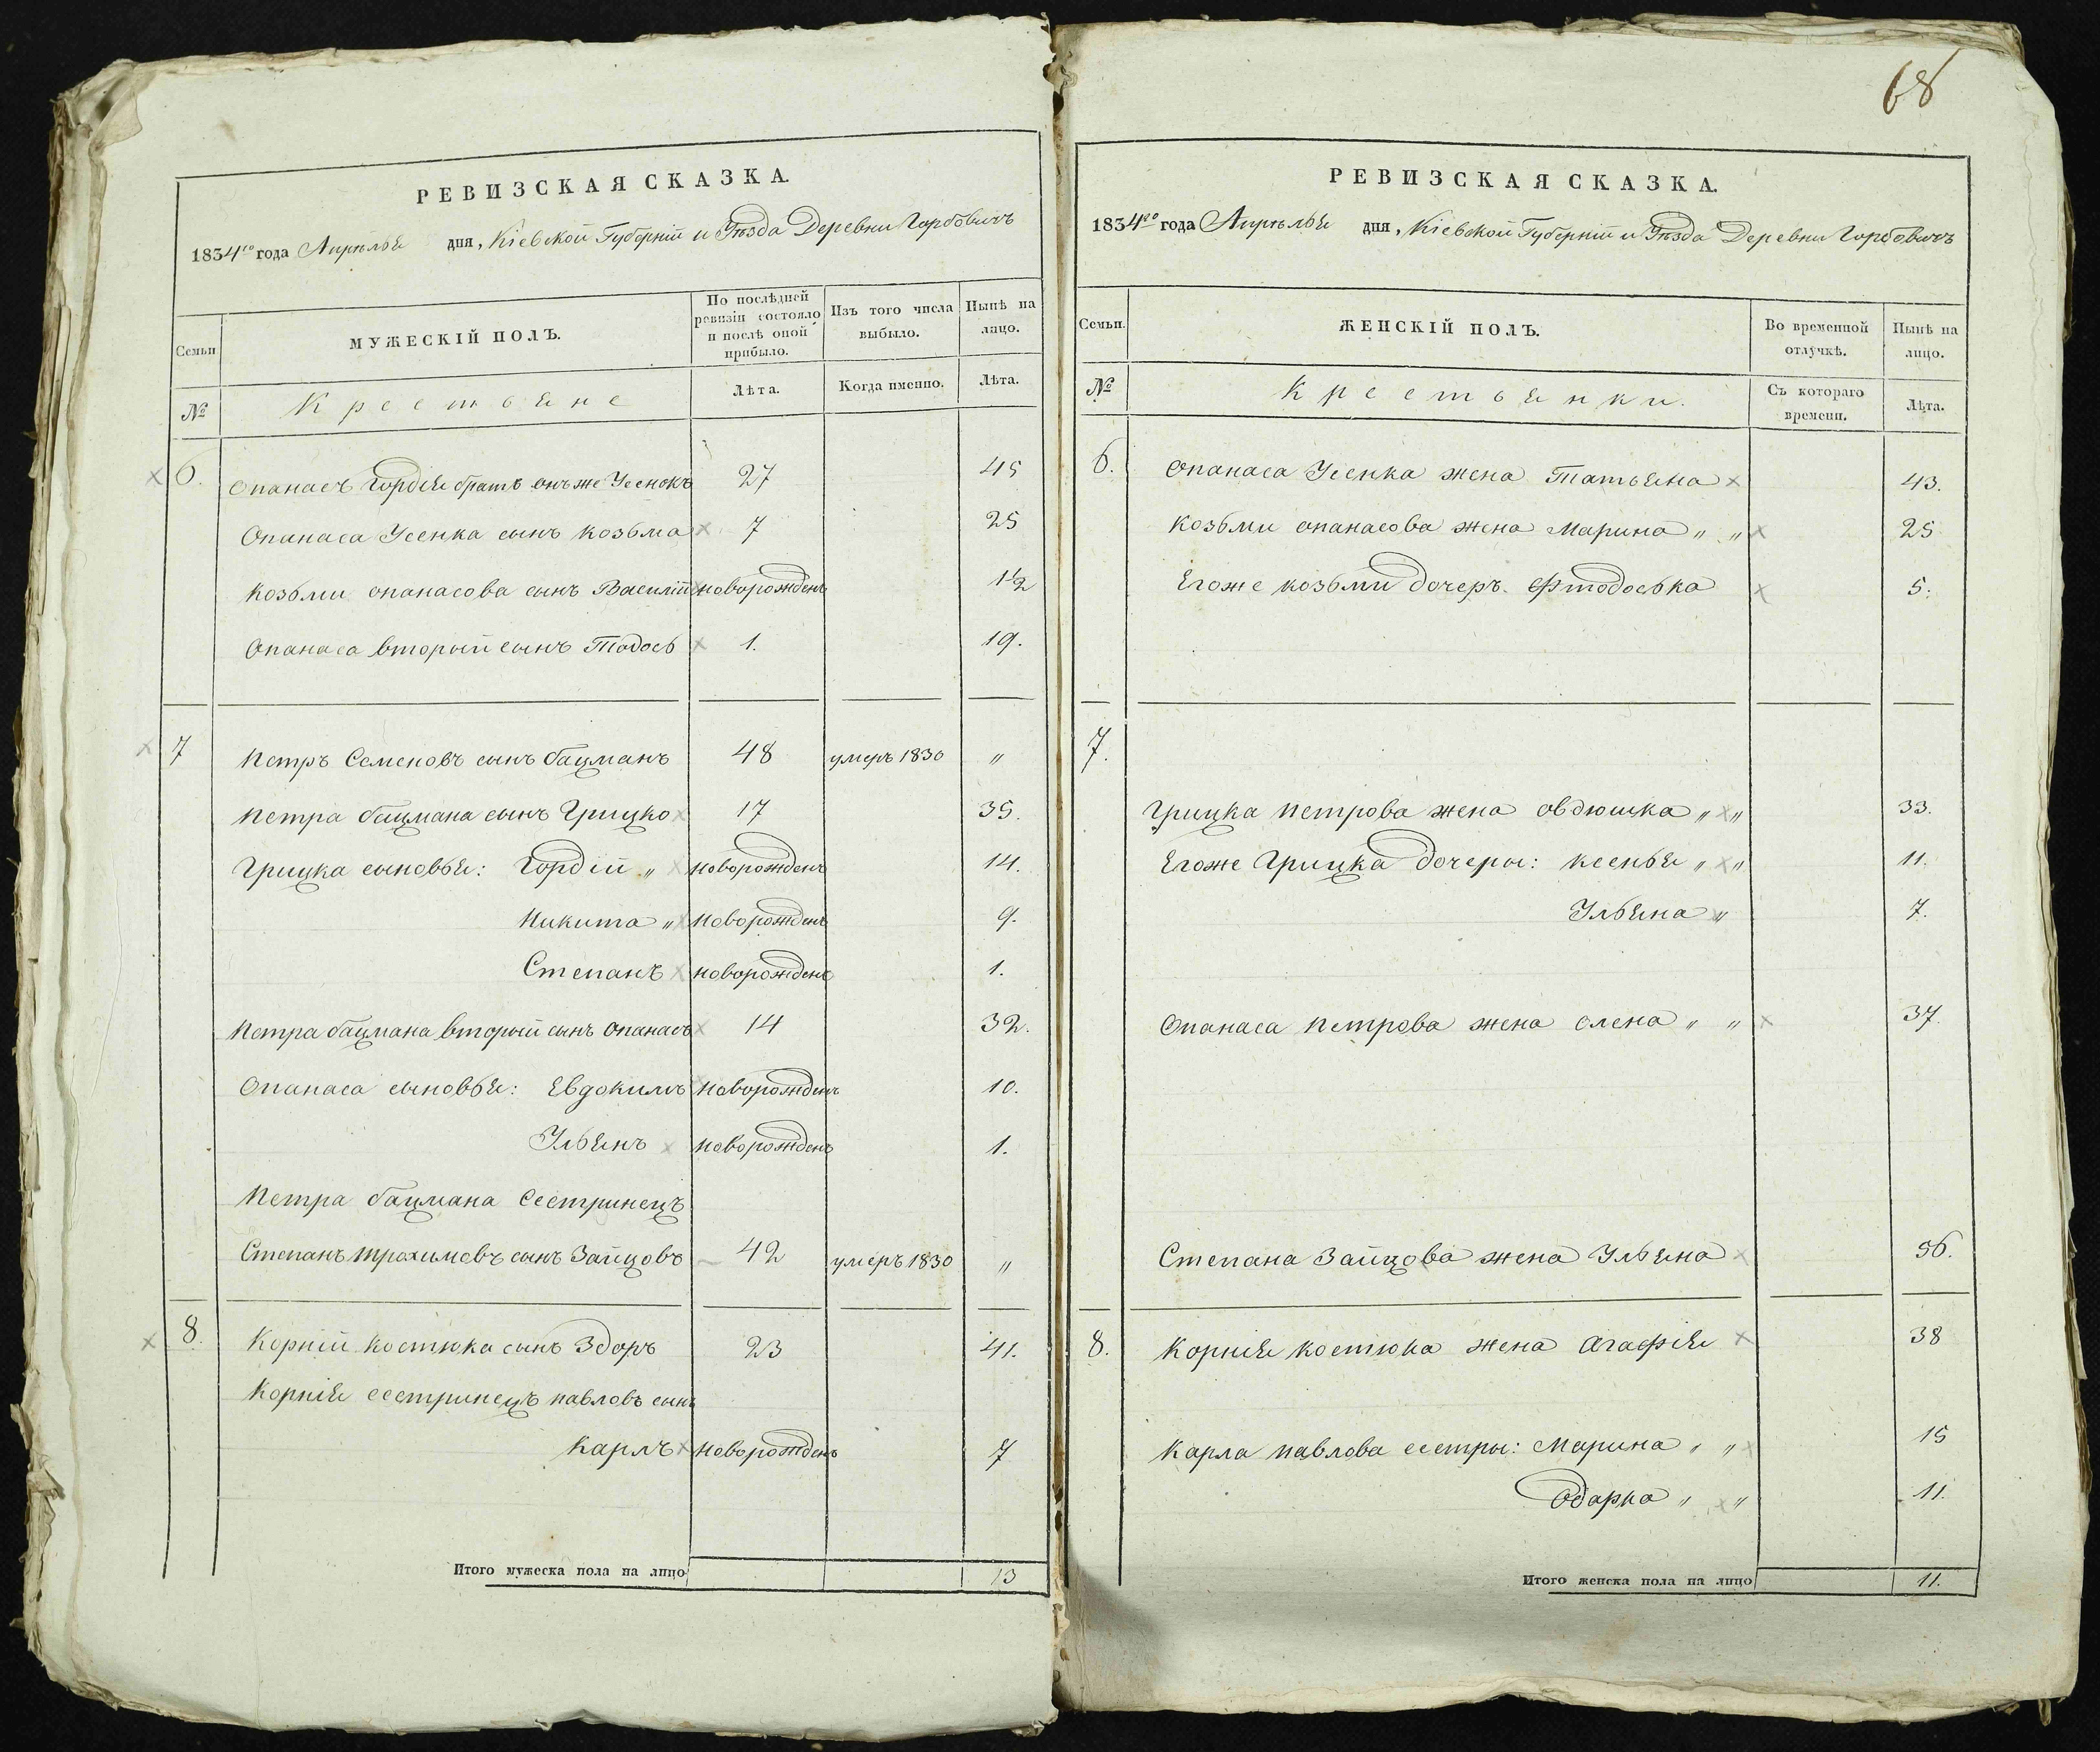 68
РЕВИЗСКАЯ СКАЗКА.
1834го года Апрѣля дня, Кіевской Губерніи и Уѣзда Деревни Горбовичъ
Семьи
МУЖЕСКІЙ ПОЛЪ.
По послѣдней ревизіи состояло и послѣ оной прибыло.
Изъ того числа выбыло.
Нынѣ на лицо.
№
Крестьяне
Лѣта.
Когда именно.
Лѣта.
6. Опанасъ Гордѣя братъ онъ же Усенокъ 27 45
Опанаса Усенка сынъ Козьма 7 25
Козьми опанасова сынъ Василій новорожденъ 1½
Опанаса вторый сынъ Тодось 1. 19.
7 Петръ Семеновъ сынъ бацманъ 48 умеръ 1830 "
Петра бацмана сынъ Грицко 17 35.
Грицка сыновья: Гордій " новорожденъ 14.
Никита " новорожденъ 9.
Степанъ новорожденъ 1.
Петра бацмана вторый сынъ опанасъ 14 32.
Опанаса сыновья: Евдокимъ новорожденъ 10.
Ульянъ новорожденъ 1.
Петра бацмана сестринецъ
Степанъ трохимовъ сынъ Зайцовъ 42 умеръ 1830 "
8. Корній костюка сынъ Здоръ 23 41.
Корнія сестринецъ павловъ сынъ
Карлъ новорожденъ 7
Итого мужеска пола на лицо 13
РЕВИЗСКАЯ СКАЗКА.
1834го года Апрѣля дня, Кіевской Губерніи и Уѣзда Деревни Горбовичъ
Семьи.
ЖЕНСКІЙ ПОЛЪ.
Во временной отлучкѣ.
Нынѣ на лицо.
№
Крестьянки.
Съ котораго времени.
Лѣта.
6. Опанаса Усенка жена Татьяна 43.
Козьми опанасова жена Марина " " 25
Егоже козьми дочеръ Фтодоська 5.
7.
Грицка петрова жена овдюшка " " 33.
Егоже Грицка дочеры: ксенья " " 11.
Ульяна " 7.
Опанаса петрова жена олена " " 37.
Степана Зайцова жена Ульяна 56.
8. Корнія костюка жена Агафія 38
Карла павлова сестры: Марина " " 15
Одарка " " 11.
Итого женска пола на лицо 11.